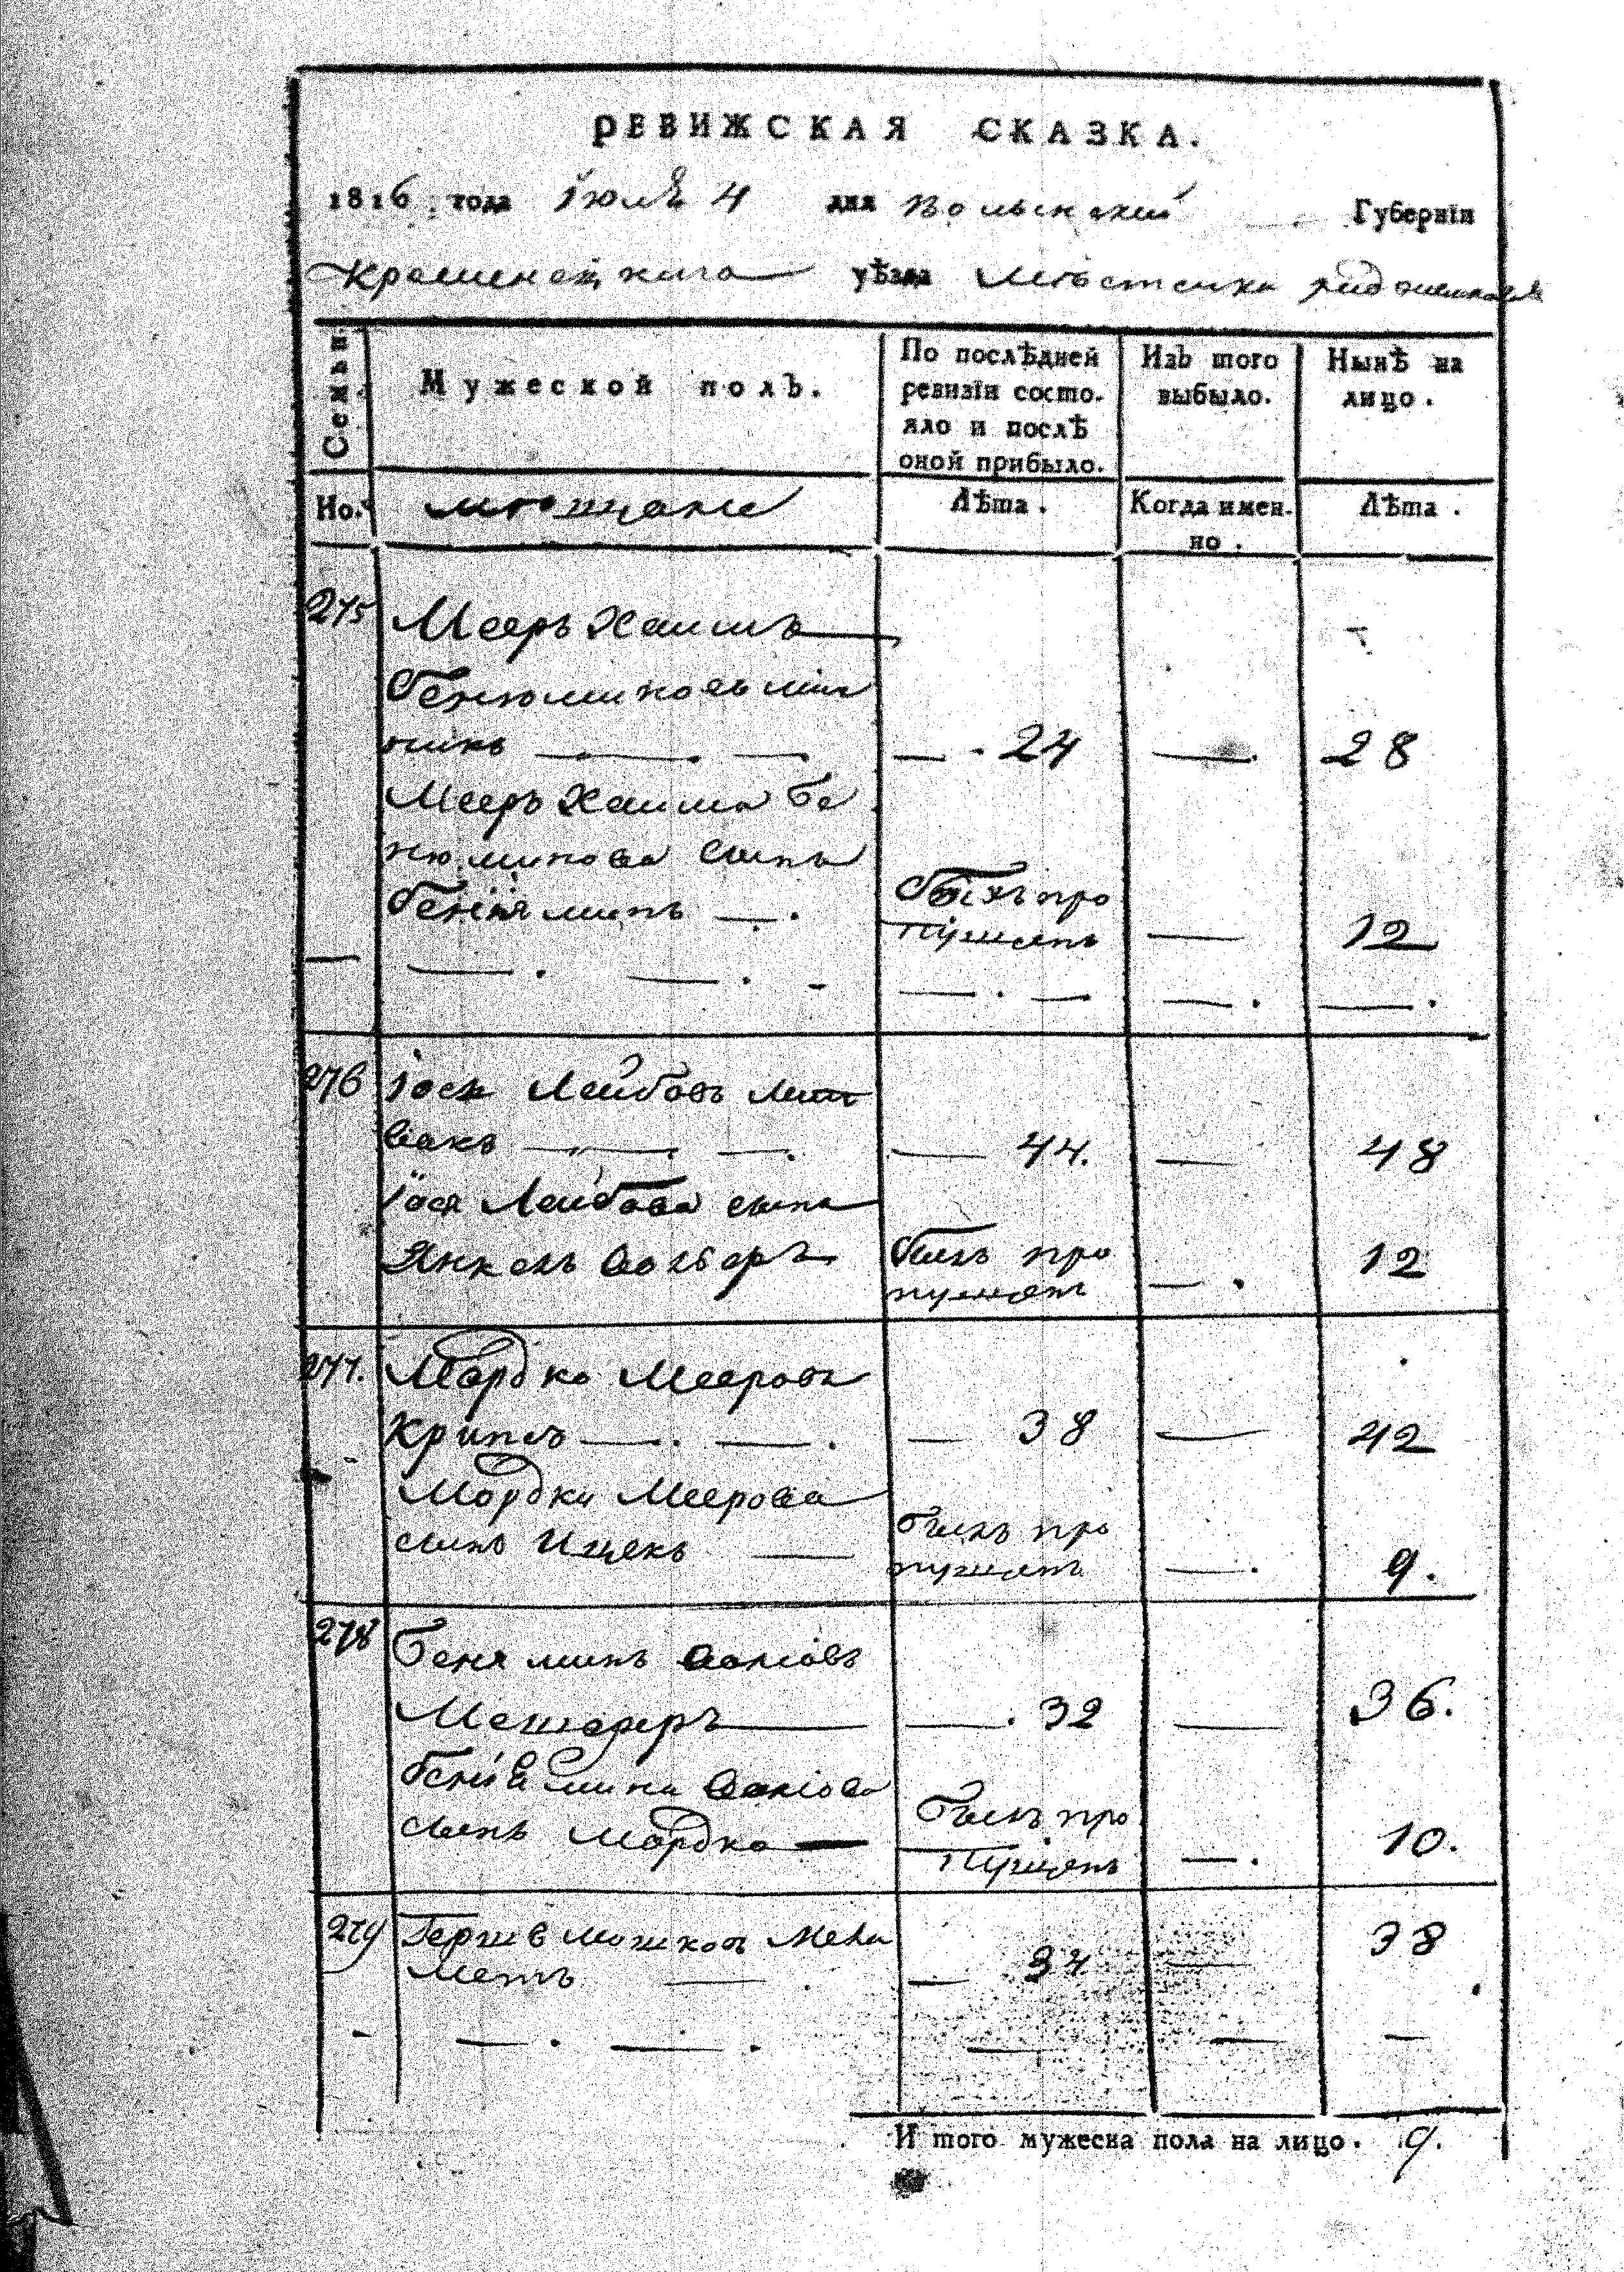 РЕВИЖСКАЯ СКАЗКА.
1816 года Іюля 4 дня Волынской Губерніи
Кременецкаго уѣзда Мѣстечка
Семьи.
Мужеской полъ.
По послѣдней
ревизіи состо-
яло и послѣ
оной прибыло.
Изъ того
выбыло.
Нынѣ на
лицо.
Но.
мещане
Лѣта.
Когда имен-
но.
Лѣта.
275 Мееръ Хаимъ
— . 24 — . 28
Мееръ Хаима Бе
нюминова сынъ
Бениминъ — . былъ про
пущенъ — 12
276 Іось Лейбовъ Лит
вакъ — . — . — 44. — 48
Іося Лейбова сынъ
Янкель Волберъ былъ про
пущенъ — . 12
277. Мордко Мееровъ
Крипсъ — . — . — 38 — 42
Мордки Меерова
сынъ Ицекъ — былъ про
пущенъ — . 9.
278 Беняминъ
— . 32 — 36.
Беніямина
сынъ Мордко — былъ про
пущенъ — . 10.
279 Гершъ Мошковъ Мела
медъ — . — 34 — 38
— — . — . — — —
И того мужеска пола на лицо. 9.